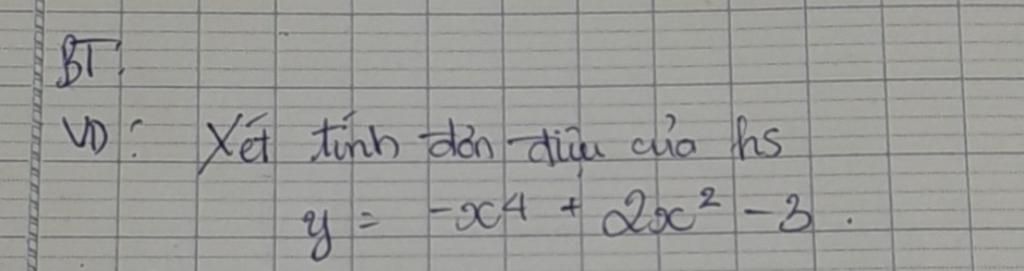 BT:
VD: Xét tính đơn điệu của hs
y = -x⁴ + 2x² - 3.